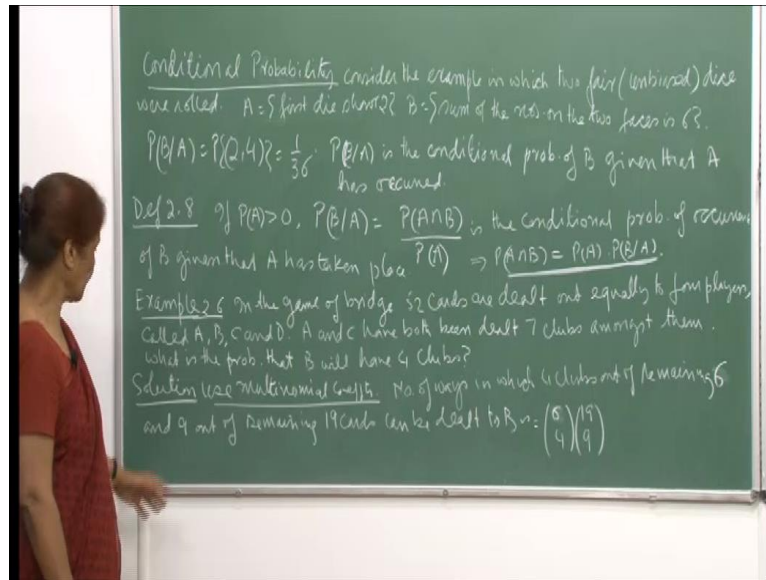 Conditional Probability consider the example in which two fair (unbiased) dice
were rolled. A = {first die shows 2} B = {sum of the nos. on the two faces is 6}.
P(B/A) = P{(2,4)} = 1/36. P(B/A) is the conditional prob. of B given that A
has occurred.
Def 2.8 If P(A)>0, P(B/A) = P(A∩B)/P(A) is the conditional prob. of occurrence
of B given that A has taken place ⇒ P(A∩B) = P(A).P(B/A).
Example 2.6 In the game of bridge 52 cards are dealt out equally to four players,
called A, B, C and D. A and C have both been dealt 7 clubs amongst them.
what is the prob. that B will have 4 clubs?
Solution Use multinomial coeffs. No. of ways in which 4 clubs out of remaining 6
and 9 out of remaining 19 cards can be dealt to B is = (6 4)(19 9)